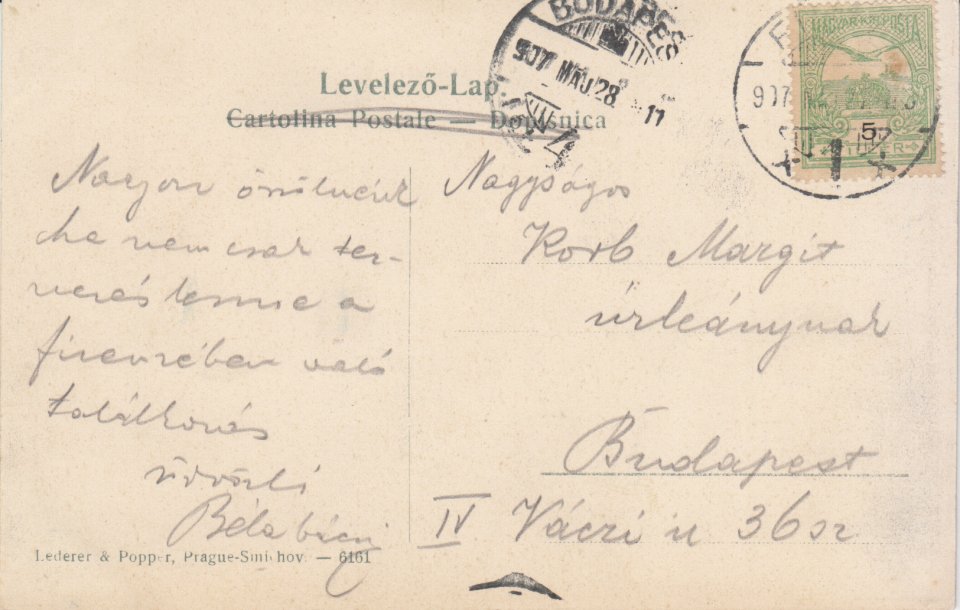 Levelező-Lap.
Cartolina Postale — Dopisnica
BUDAPEST
907 MÁJ 28
907
MAGYAR KIR. POSTA
5
FILLÉR
Nagyon örülnénk
ha nem csak ter-
vezés lenne a
firenzében való
találkozás
üdvözli
Béla bácsi
Nagyságos
Korb Margit
úrleánynak
Budapest
IV Váczi u 36 sz
Lederer & Popper, Prague-Smichov. — 6161